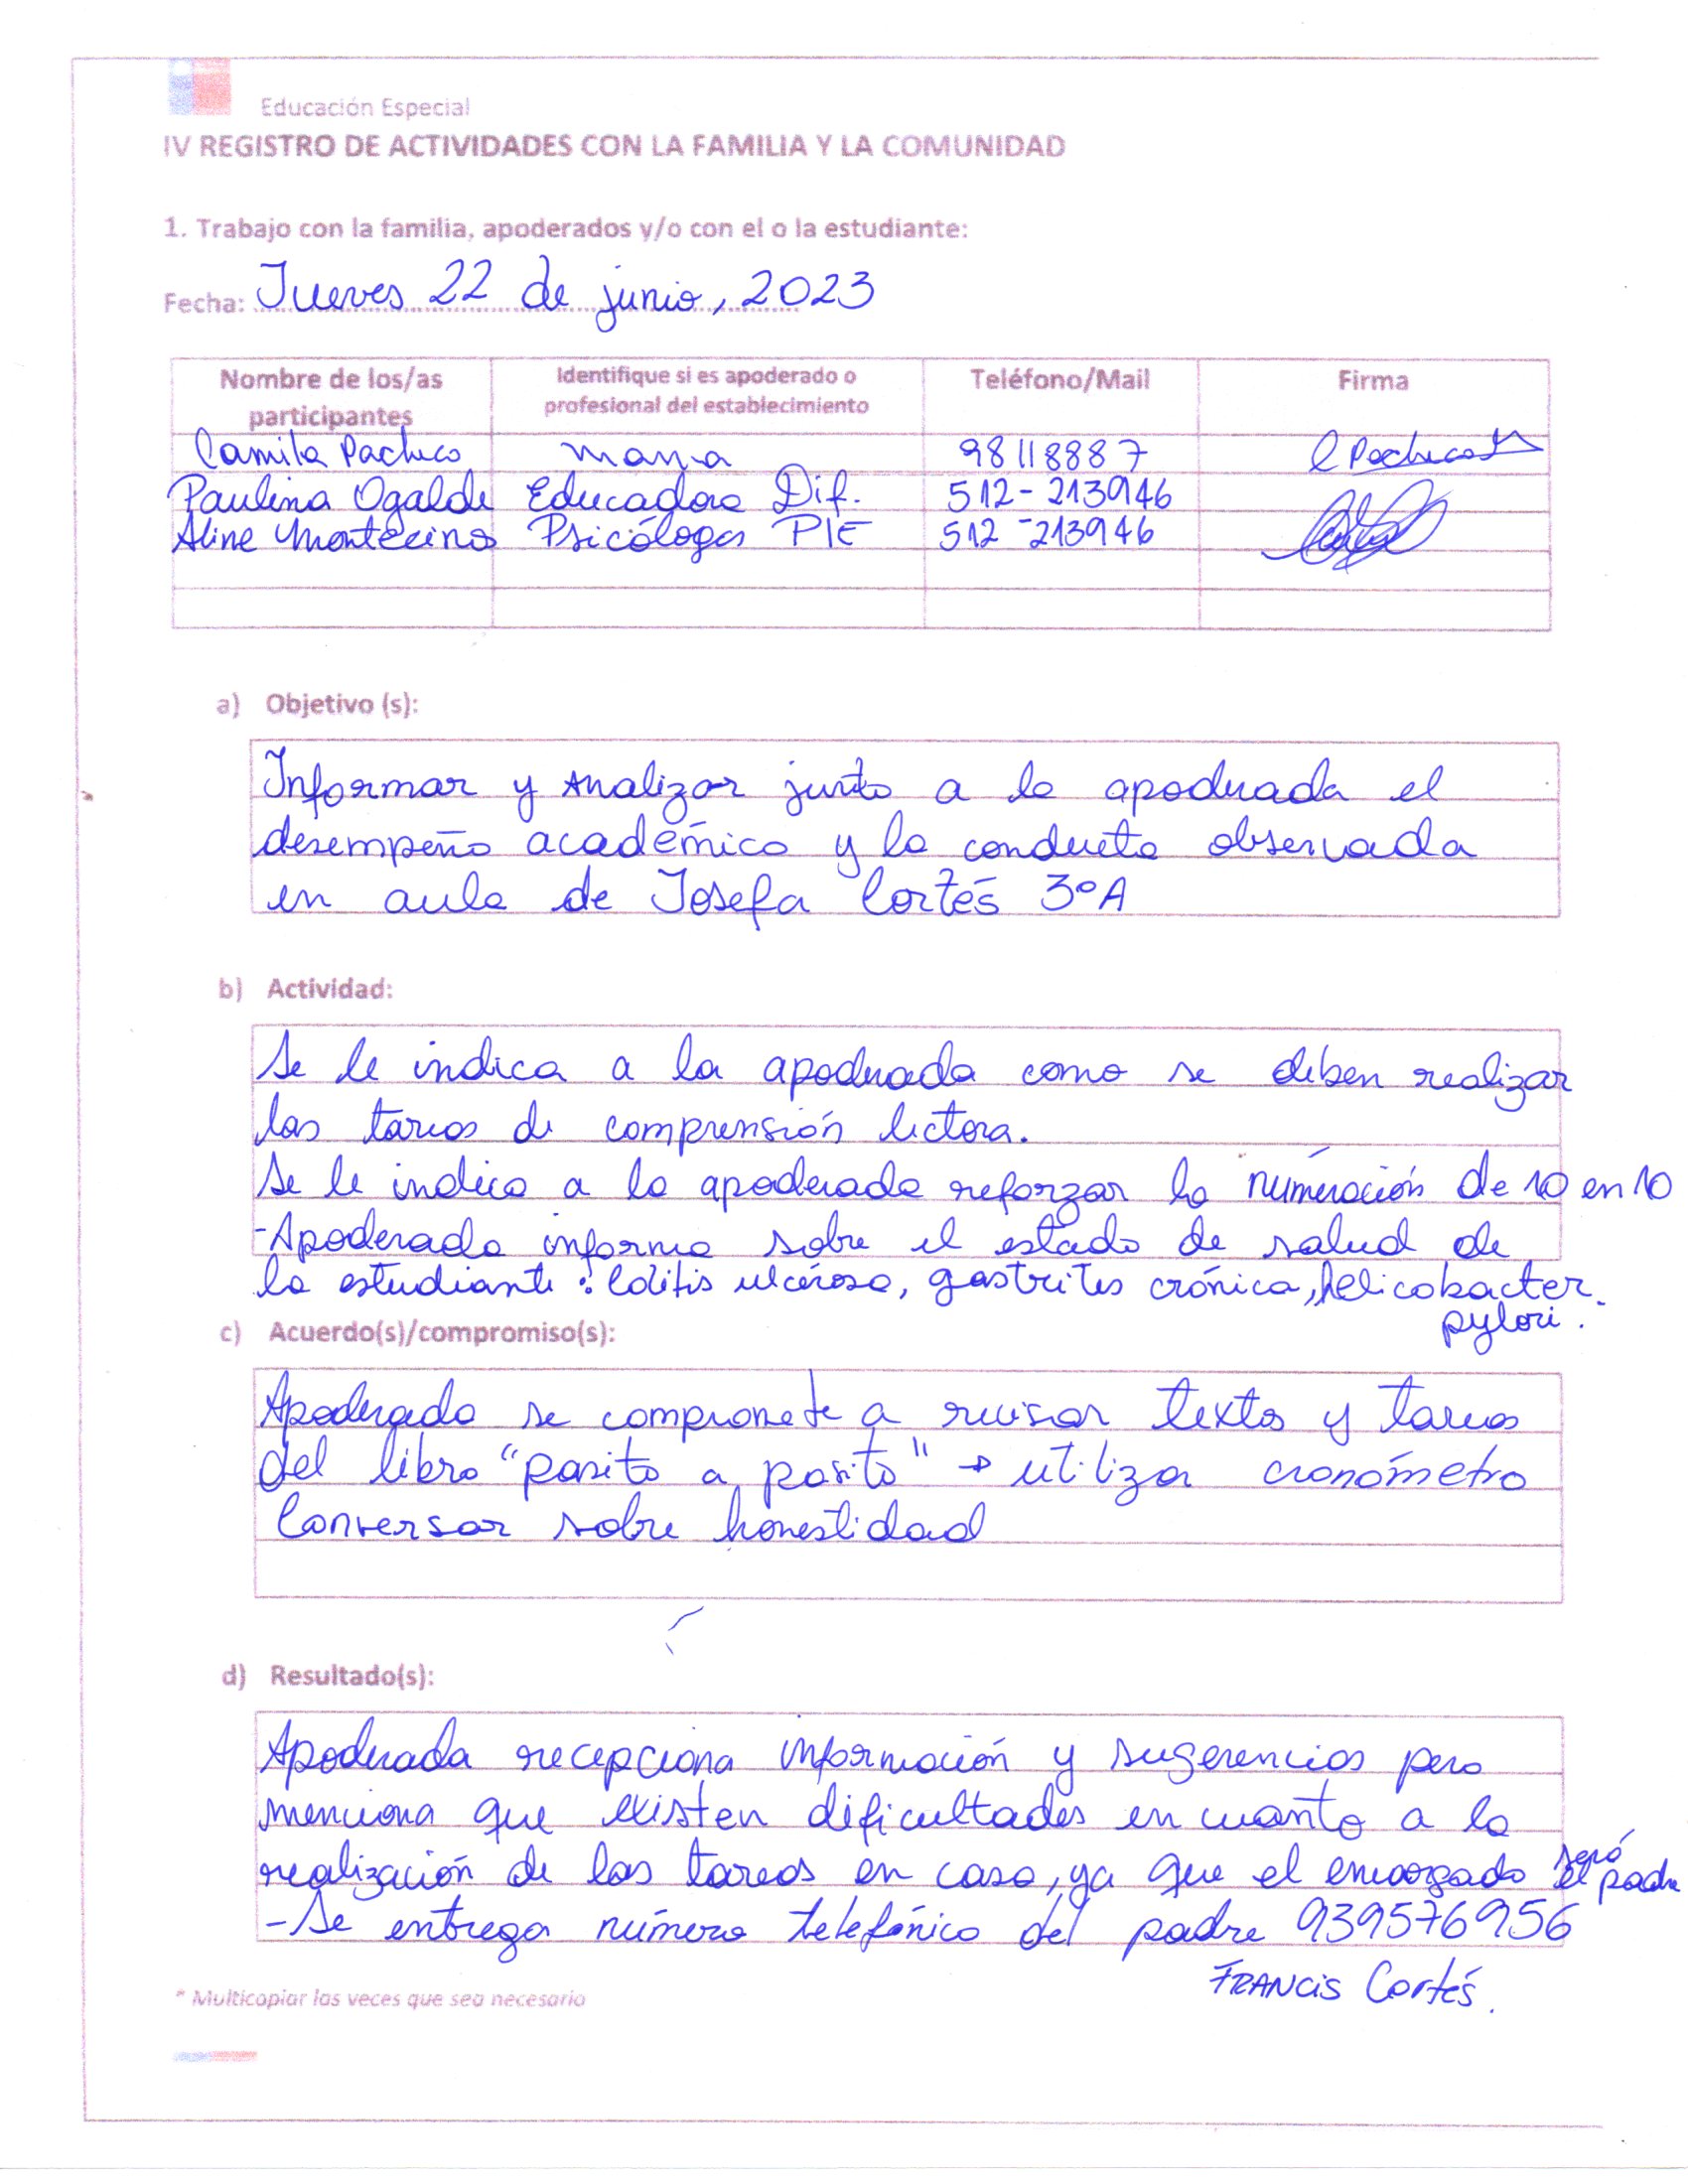 Educación Especial
IV REGISTRO DE ACTIVIDADES CON LA FAMILIA Y LA COMUNIDAD
1. Trabajo con la familia, apoderados y/o con el o la estudiante:
Fecha: Jueves 22 de junio, 2023
Nombre de los/as participantes Identifique si es apoderado o profesional del establecimiento Teléfono/Mail Firma
Camila Pacheco mama 98118887 C Pacheco
Paulina Ogalde Educadora Dif. 512-213946
Aline Montecino Psicóloga PIE 512-213946
a) Objetivo (s):
Informar y Analizar junto a la apoderada el
desempeño académico y la conducta observada
en aula de Josefa Cortés 3°A
b) Actividad:
Se le indica a la apoderada como se deben realizar
las tareas de comprensión lectora.
Se le indica a la apoderada reforzar la numeración de 10 en 10
-Apoderada informa sobre el estado de salud de
la estudiante: Colitis ulcerosa, gastritis crónica, helicobacter
pylori.
c) Acuerdo(s)/compromiso(s):
Apoderada se compromete a revisar textos y tareas
del libro "pasito a pasito" → utilizar cronómetro
Conversar sobre honestidad
d) Resultado(s):
Apoderada recepciona información y sugerencias pero
menciona que existen dificultades en cuanto a la
realización de las tareas en casa, ya que el encargado será el padre
- Se entrega número telefónico del padre 939576956
FRANCIS Cortés.
* Multicopiar las veces que sea necesario